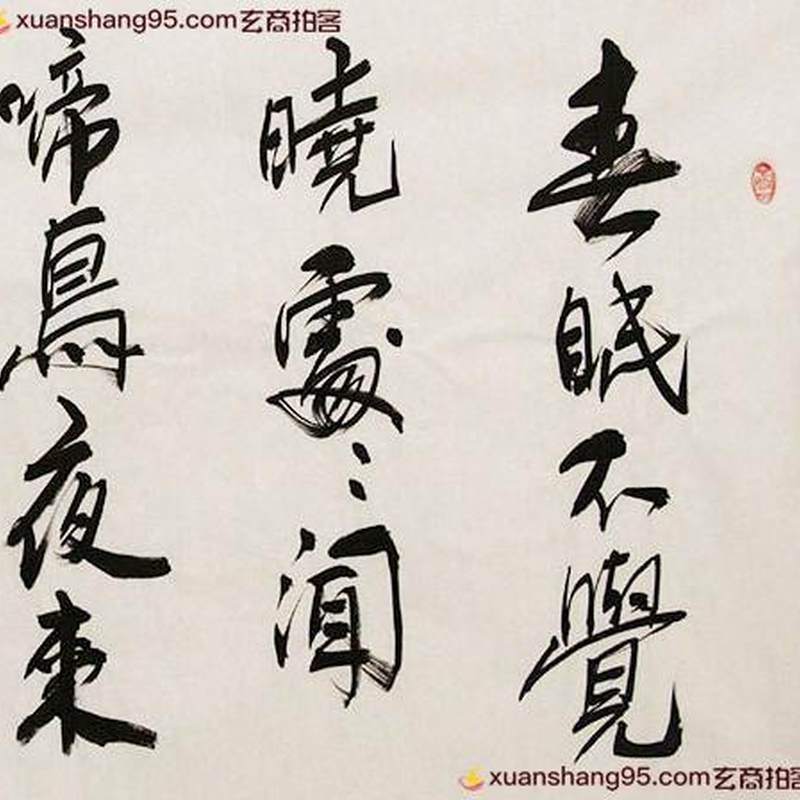 xuanshang95.com玄商拍客
春眠不覺
曉處〻聞
啼鳥夜來
xuanshang95.com玄商拍客